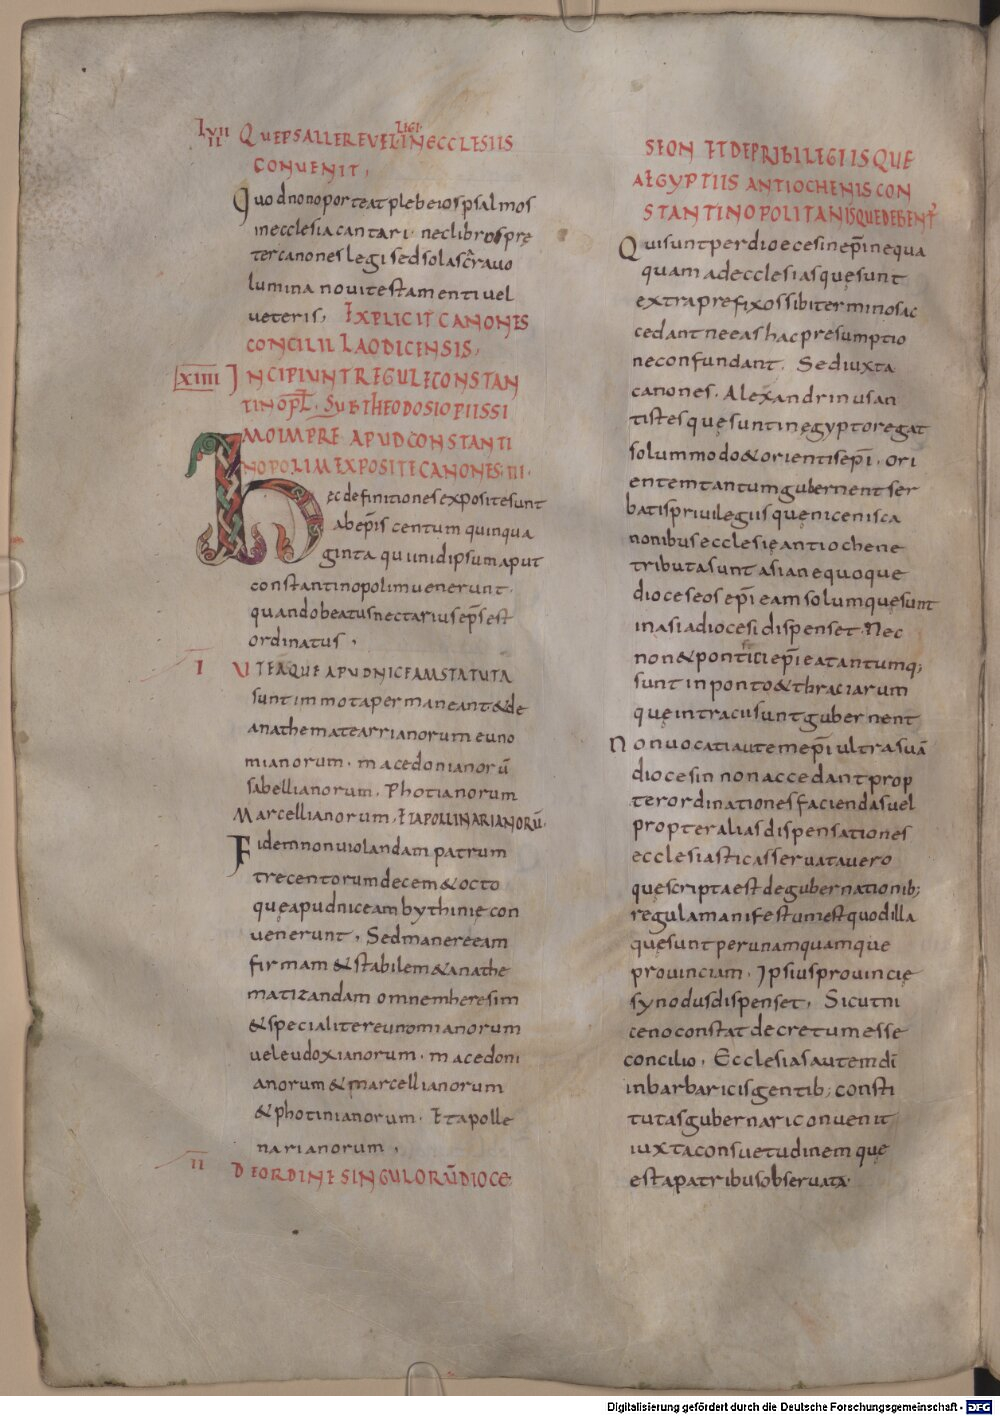 LVII
II
QUE PSALLERE VEL IN ECCLESIIS
LEGI
CONVENIT,
Quod non oporteat plebeios psalmos
in ecclesia cantari. nec libros prę
ter canones legi sed sola sc̄ra uo
lumina noui testamenti uel
ueteris, EXPLICIT CANONES
CONCILII LAODICENSIS,
XIIII INCIPIUNT REGULE CONSTAN
TINOPL̄. SUB THEODOSIO PIISSI
MO IMPRE APUD CONSTANTI
NOPOLIM EXPOSITE CANONES. III.
Hec definitiones exposite sunt
ab ep̄is centum quinqua
ginta qui in idipsum aput
constantinopolim uenerunt.
quando beatus nectarius ep̄s est
ordinatus,
I UTEA QUE APUD NICEAM STATUTA
sunt immota permaneant & de
anathemate arrianorum euno
mianorum. macedonianorū
sabellianorum. Photianorum
Marcellianorum. ET APOLLINARIANORŪ.
Fidem non uiolandam patrum
trecentorum decem & octo
quę apud niceam bythinię con
uenerunt, Sed manere eam
firmam & stabilem & anathe
matizandam omnem heresim
& specialiter eunomianorum
uel eudoxianorum. macedoni
anorum & marcellianorum
& photinianorum. Et apolle
narianorum,
II DE ORDINE SINGULORŪ DIOCE
SEON ET DE PRIBILEGIIS QUE
AEGYPTIIS ANTIOCHENIS CON
STANTINOPOLITANISQUE DEBENT̄
Qui sunt per dioecesin ep̄i nequa
quam ad ecclesias quę sunt
extra prefixos sibi terminos ac
cedant ne eas hac presumptio
ne confundant. Sed iuxta
canones. Alexandrinus an
tistes quę sunt in egypto regat
solummodo & orientis ep̄i. ori
entem tantum gubernent ser
batis priuilegiis quę nicenis ca
nonibus ecclesię antiochene
tributa sunt asiane quoque
dioceseos ep̄i eam solum quę sunt
in asia diocesi dispenset. Nec
non & pontici ep̄i ea tantumq;
sunt in ponto & thraciarum
quę in tracus sunt gubernent
Non uocati autem ep̄i ultra suā
diocesin non accedant prop
ter ordinationes faciendas uel
propter alias dispensationes
ecclesiasticas seruata uero
quę scripta est de gubernationib;
regula manifestum est quod illa
quę sunt per unamquamque
prouinciam. Ipsius prouincię
synodus dispenset, Sicut ni
ceno constat decretum esse
concilio, Ecclesias autem dī
in barbaricis gentib; consti
tutas gubernari conuenit
iuxta consuetudinem quę
est a patribus obseruata.
Digitalisierung gefördert durch die Deutsche Forschungsgemeinschaft - DFG